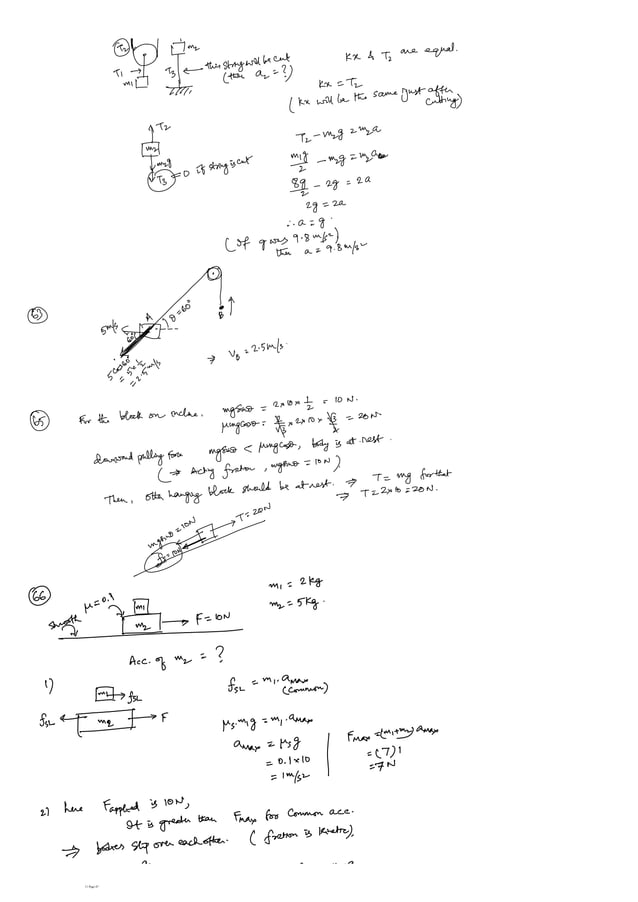 T₂
T₁
m₁
m₂
T₃
this string will be cut
(then a₂ = ?)
Kx & T₂ are equal.
Kx = T₂
(Kx will be the same just after cutting)
T₂
m₂
m₂g
T₃ = 0 if string is cut
T₂ - m₂g = m₂a
m₁g/2 - m₂g = m₂a
8g/2 - 2g = 2a
2g = 2a
∴ a = g.
(If g was 9.8 m/s²)
then a = 9.8 m/s²
63
5m/s
A
60°
θ = 60°
B
5cos60°
= 5×1/2
= 2.5m/s
⇒ V_B = 2.5m/s.
65
For the block on incline. mgsinθ = 2×10×1/2 = 10 N.
μmgcosθ = √2/√3 × 2×10×√3/2 = 20N.
downward pulling force mgsinθ < μmgcosθ, body is at rest.
(⇒ Acting friction, mgsinθ = 10N)
Then, other hanging block should be at rest. ⇒ T = mg for that
⇒ T = 2×10 = 20N.
mgsinθ = 10N
T = 20N
fs = 10N
66
smooth
μ = 0.1
m₁
m₂
F = 10N
m₁ = 2kg
m₂ = 5kg.
Acc. of m₂ = ?
1)
m₁
fSL
fSL
m₂
F
fSL = m₁.amax
(common)
μs.m₁g = m₁.amax
amax = μsg
= 0.1×10
= 1m/s²
Fmax = (m₁+m₂) amax
= (7)1
= 7N
2) here Fapplied is 10N,
It is greater than Fmax for common acc.
⇒ bodies slip over each other. (friction is kinetic).